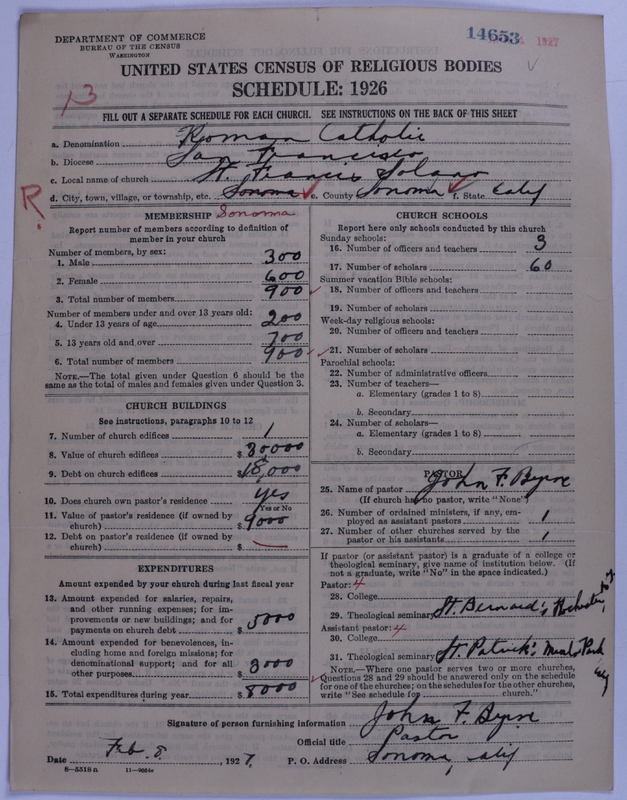 DEPARTMENT OF COMMERCE
BUREAU OF THE CENSUS
WASHINGTON
14653 1927
UNITED STATES CENSUS OF RELIGIOUS BODIES
SCHEDULE: 1926
13
FILL OUT A SEPARATE SCHEDULE FOR EACH CHURCH. SEE INSTRUCTIONS ON THE BACK OF THIS SHEET
a. Denomination Roman Catholic
b. Diocese San Francisco
c. Local name of church St. Francis Solano
R. d. City, town, village, or township, etc. Sonoma e. County Sonoma f. State Calif
MEMBERSHIP Sonoma
Report number of members according to definition of
member in your church
Number of members, by sex:
1. Male 300
2. Female 600
3. Total number of members 900
Number of members under and over 13 years old:
4. Under 13 years of age 200
5. 13 years old and over 700
6. Total number of members 900
NOTE.—The total given under Question 6 should be
same as the total of males and females given under Question 3.
CHURCH BUILDINGS
See instructions, paragraphs 10 to 12
7. Number of church edifices 1
8. Value of church edifices $30000
9. Debt on church edifices $18,000
10. Does church own pastor's residence yes
Yes or No
11. Value of pastor's residence (if owned by
church) $9000
12. Debt on pastor's residence (if owned by
church) $ —
EXPENDITURES
Amount expended by your church during last fiscal year
13. Amount expended for salaries, repairs,
and other running expenses; for im-
provements or new buildings; and for
payments on church debt $5000
14. Amount expended for benevolences, in-
cluding home and foreign missions; for
denominational support; and for all
other purposes $3000
15. Total expenditures during year $8000
CHURCH SCHOOLS
Report here only schools conducted by this church
Sunday schools:
16. Number of officers and teachers 3
17. Number of scholars 60
Summer vacation Bible schools:
18. Number of officers and teachers
19. Number of scholars
Week-day religious schools:
20. Number of officers and teachers
21. Number of scholars
Parochial schools:
22. Number of administrative officers
23. Number of teachers—
a. Elementary (grades 1 to 8)
b. Secondary
24. Number of scholars—
a. Elementary (grades 1 to 8)
b. Secondary
PASTOR
25. Name of pastor John F. Byrne
(If church has no pastor, write "None")
26. Number of ordained ministers, if any, em-
ployed as assistant pastors 1
27. Number of other churches served by the
pastor or his assistants 1
If pastor (or assistant pastor) is a graduate of a college or
theological seminary, give name of institution below. (If
not a graduate, write "No" in the space indicated.)
Pastor: 4
28. College
29. Theological seminary St. Bernard's Rochester, N.Y.
Assistant pastor: 4
30. College
31. Theological seminary St. Patrick's Menlo Park
NOTE.—Where one pastor serves two or more churches,
Questions 28 and 29 should be answered only on the schedule
for one of the churches; on the schedules for the other churches,
write "See schedule for church."
Signature of person furnishing information John F. Byrne
Official title Pastor
Date Feb. 8, 1927. P. O. Address Sonoma, Calif
8—5518a 11—9664